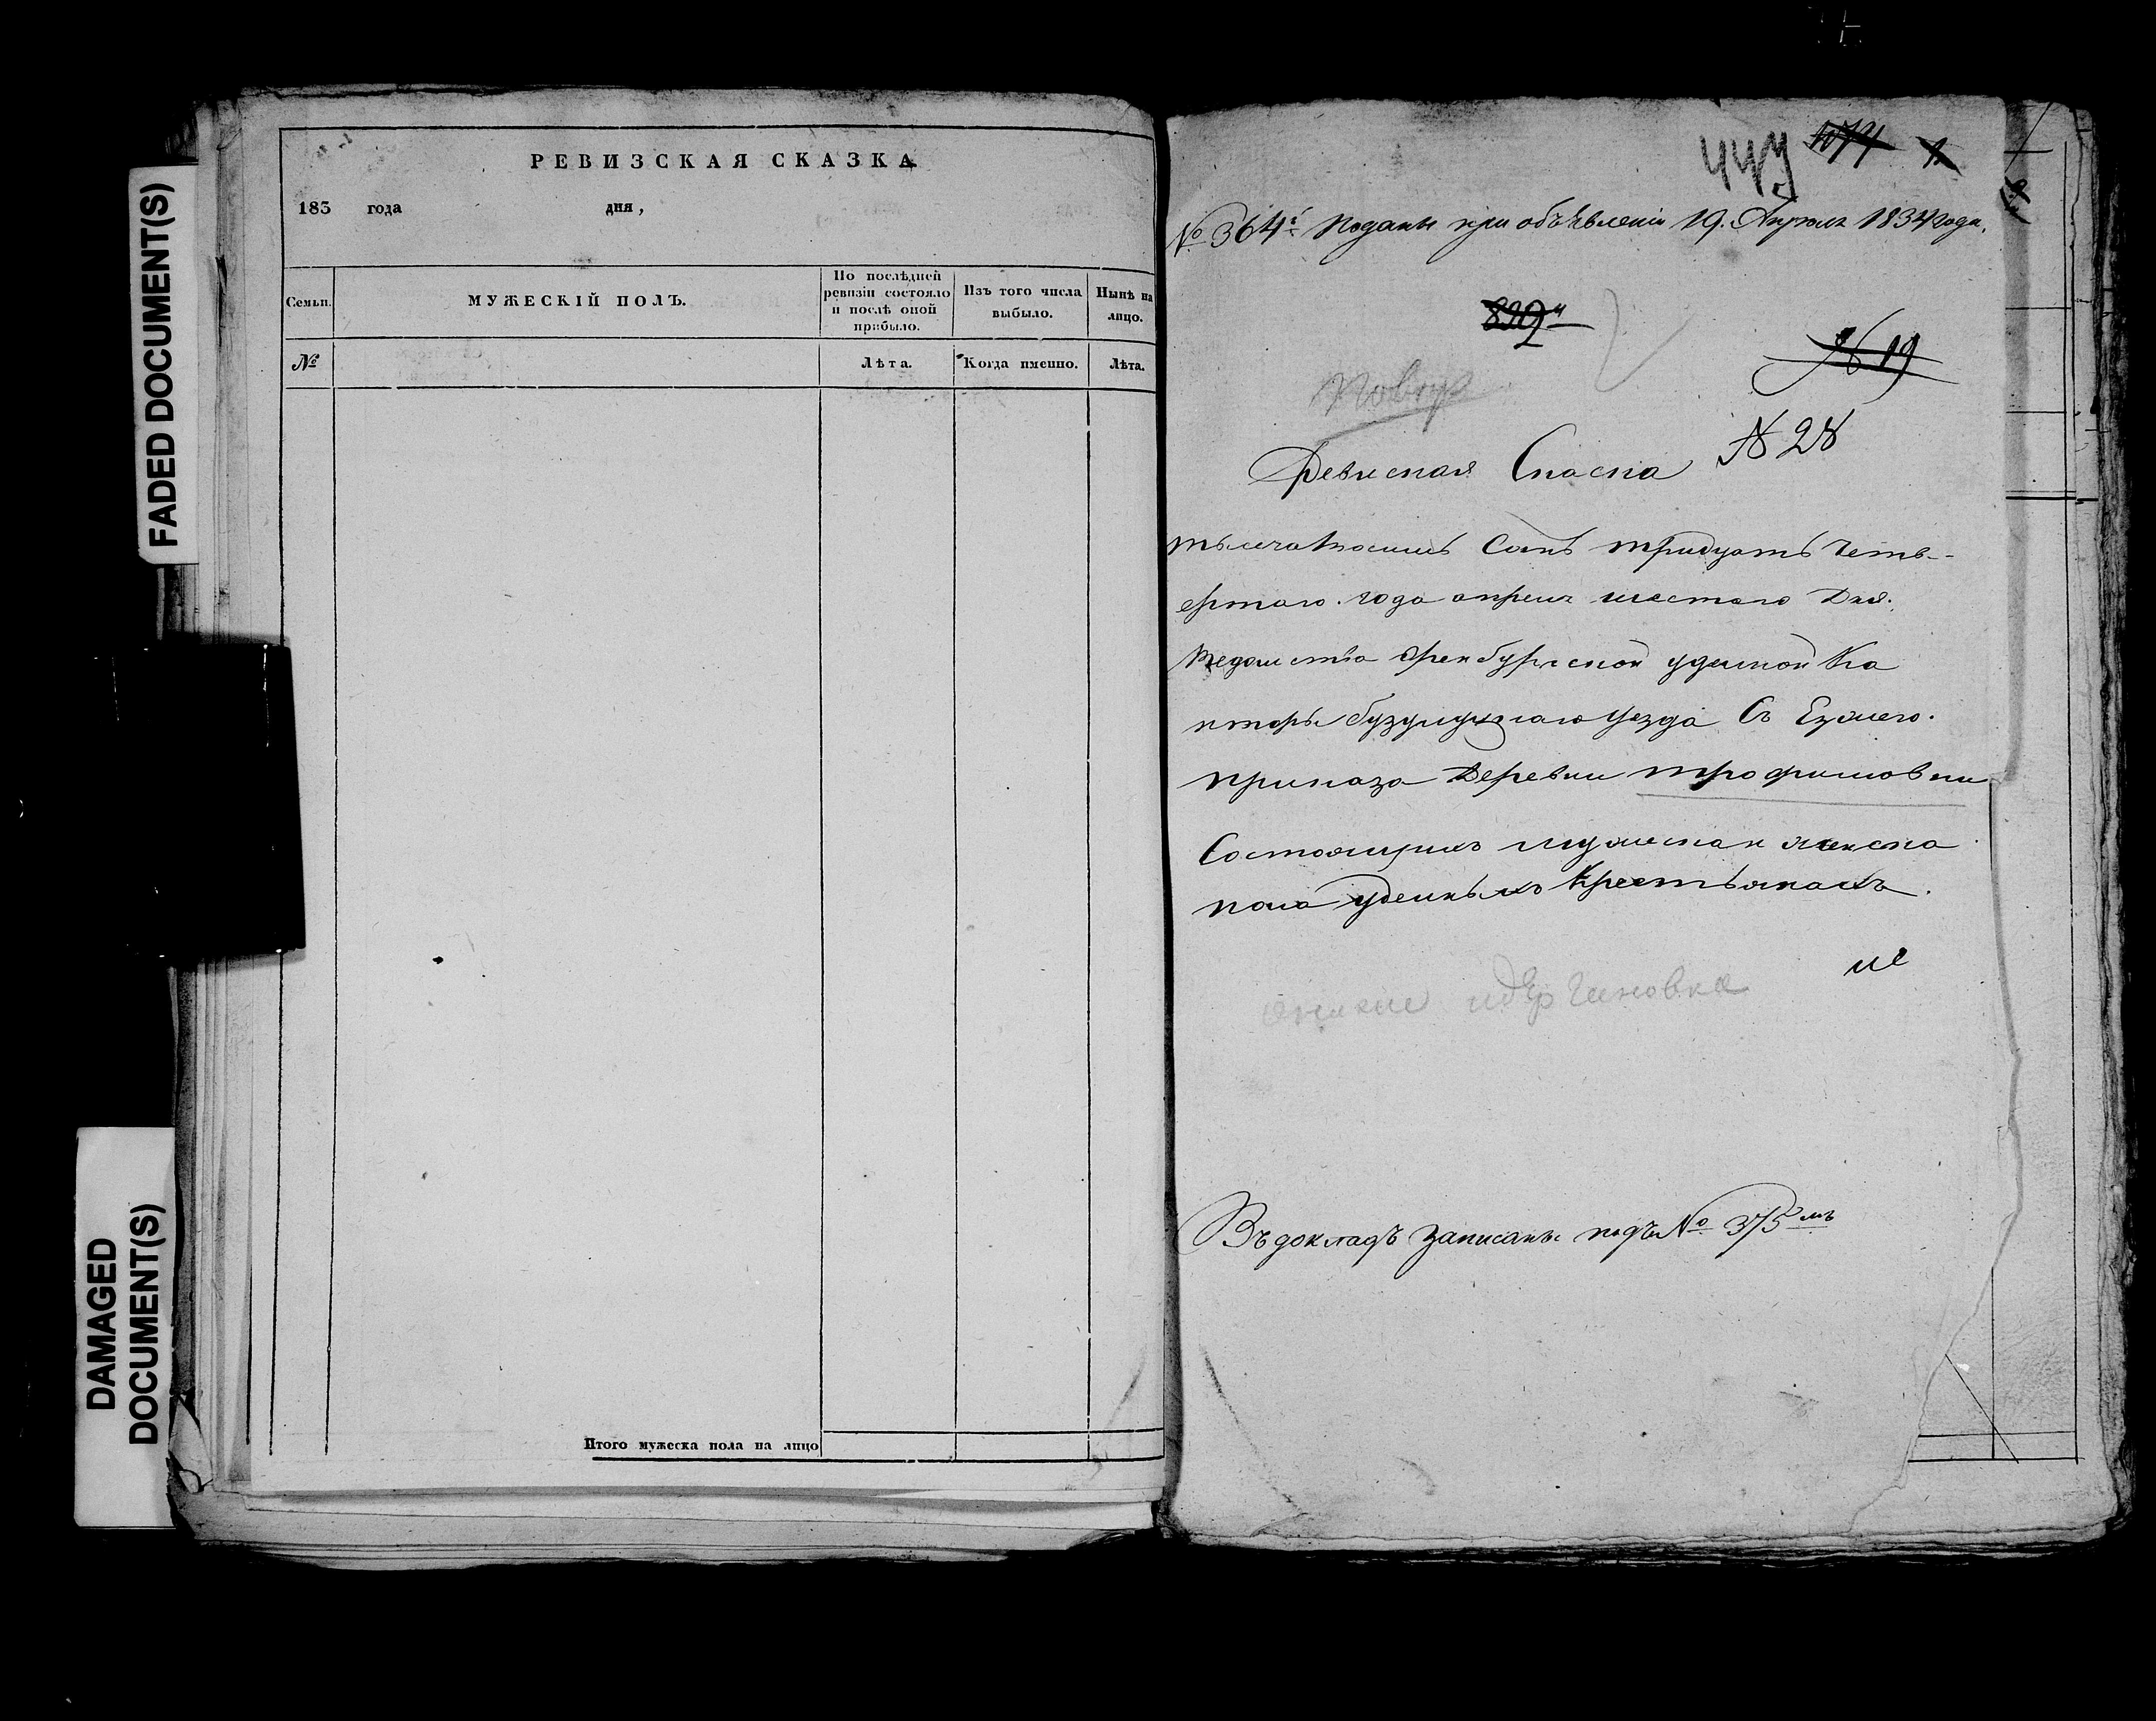 FADED DOCUMENT(S)
DAMAGED
DOCUMENT(S)
РЕВИЗСКАЯ СКАЗКА
183 года дня,
Семьи.
МУЖЕСКІЙ ПОЛЪ.
По послѣдней
ревизіи состояло
и послѣ оной
прибыло.
Изъ того числа
выбыло.
Нынѣ на
лицо.
№
Лѣта.
Когда именно.
Лѣта.
Итого мужеска пола на лицо
447 1
№ 364й Поданы при объявленіи 19. Апрѣля 1834 года.
829
№ 19
№ 28
Ревиская Скаска
тысяча восимь Сотъ тридцать Четв-
ертаго года апреля шестаго Дня.
Ведомства Оренбургской удельной Ка
нторы бузулуцкаго уезда Съ Езжего.
приказа Деревни трофимовки
Состоящихъ мужеска и женска
пола удельныхъ Крестьянахъ.
Въ докладъ записаны подъ № 375мъ